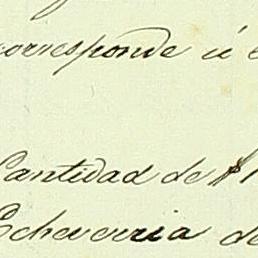 corresponde á
Cantidad de $1
Echeverria de